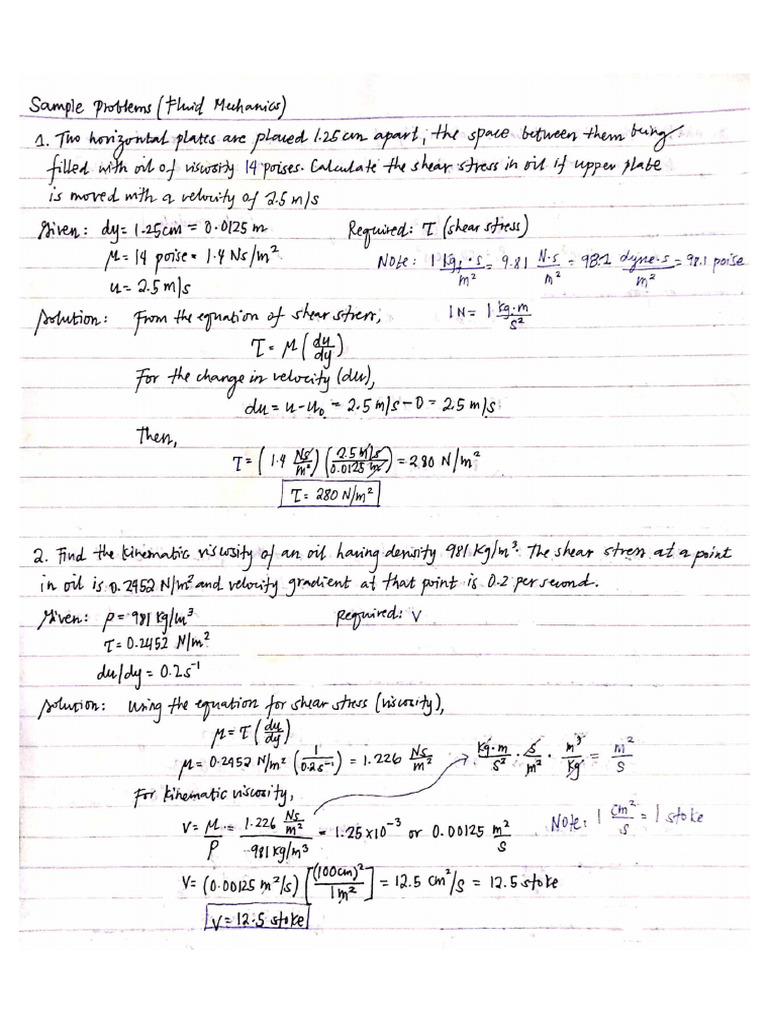 Sample Problems (Fluid Mechanics)
1. Two horizontal plates are placed 1.25 cm apart, the space between them being
filled with oil of viscosity 14 poises. Calculate the shear stress in oil if upper plate
is moved with a velocity of 2.5 m/s
Given: dy = 1.25cm = 0.0125 m Required: τ (shear stress)
μ = 14 poise = 1.4 Ns/m² Note: 1 kgf·s/m² = 9.81 N·s/m² = 98.1 dyne·s/m² = 98.1 poise
u = 2.5 m/s
Solution: From the equation of shear stress, 1N = 1 kg·m/s²
τ = μ (du/dy)
For the change in velocity (du),
du = u - u₀ = 2.5 m/s - 0 = 2.5 m/s
Then,
τ = (1.4 Ns/m²) (2.5 m/s / 0.0125 m) = 280 N/m²
τ = 280 N/m²
2. Find the kinematic viscosity of an oil having density 981 kg/m³. The shear stress at a point
in oil is 0.2452 N/m² and velocity gradient at that point is 0.2 per second.
Given: ρ = 981 kg/m³ Required: ν
τ = 0.2452 N/m²
du/dy = 0.2 s⁻¹
Solution: Using the equation for shear stress (viscosity),
μ = τ (du/dy)
μ = 0.2452 N/m² (1/0.2s⁻¹) = 1.226 Ns/m² kg·m/s² · s/m² · m³/kg = m²/s
For kinematic viscosity,
ν = μ/ρ = 1.226 Ns/m² / 981 kg/m³ = 1.25 x 10⁻³ or 0.00125 m²/s Note: 1 cm²/s = 1 stoke
ν = (0.00125 m²/s) [(100cm)²/1m²] = 12.5 cm²/s = 12.5 stoke
ν = 12.5 stoke